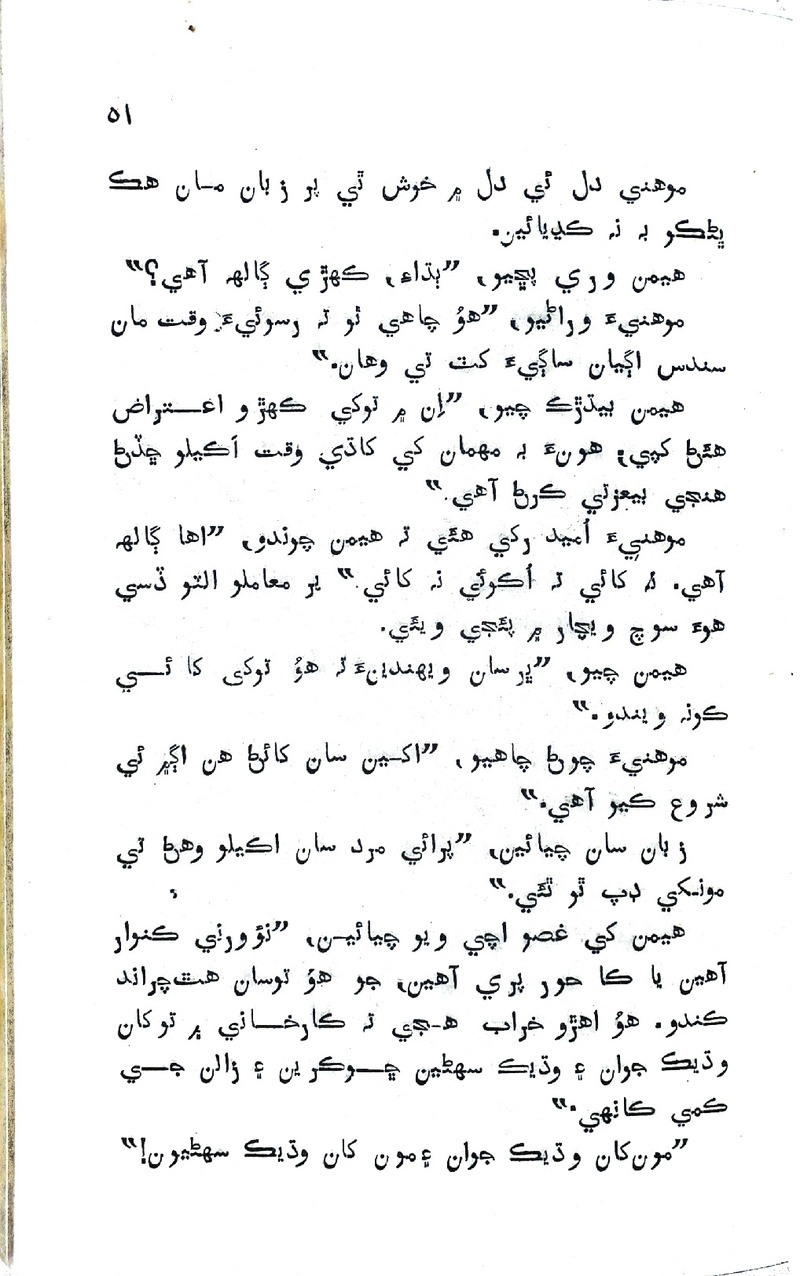 ٥١
موهني دل ئي دل ۾ خوش ٿي پر زبان مـان هڪ
ڀڻڪو بہ نہ ڪڍيائين.
هيمن وري پڇيو، ”ٻڌاء، ڪهڙي ڳالهہ آهي؟“
موهنيءَ وراڻيو، ”هوُ چاهي ٿو تہ رسوئيءَ وقت مان
سندس اڳيان ساڳيءَ کٽ تي وهان.“
هيمن بيڌڙڪ چيو، ”اِن ۾ توکي ڪهڙو اعــتراض
هئڻ کپي؛ هونءَ بہ مهمان کي کاڌي وقت اَڪيلو ڇڏڻ
هنجي بيعزتي ڪرڻ آهي.“
موهنيءَ اُميد رکي هئي تہ هيمن چوندو، ”اها ڳالهہ
آهي. نہ کائي تہ اُڪوئي نہ کائي.“ پر معاملو الٽو ڏسي
هوءَ سوچ ويچار ۾ پئجي ويئي.
هيمن چيو، ”ڀرسان ويهندينءَ تہ هوُ توکی کائــي
ڪونہ ويندو.“
موهنيءَ چوڻ چاهيو، ”اکـين سان کائڻ هن اڳ۾ ئي
شروع ڪيو آهي.“
زبان سان چيائين، ”پرائي مرد سان اڪيلو وهڻ تي
مونـکي ڊپ ٿو ٿئي.“
هيمن کي غصو اچي ويو چيائيـن، ”نؤورني ڪنوار
آهين يا ڪا حور پري آهين، جو هوُ توسان هٿ‌چراند
ڪندو. هوُ اهڙو خراب هـجي تہ ڪارخــاني ۾ توکان
وڌيڪ جوان ۽ وڌيڪ سهڻين ڇــوڪرين ۽ زالن جــي
ڪمي ڪانهي.“
”مون‌کان وڌيڪ جوان ۽مون کان وڌيڪ سهڻيون!“